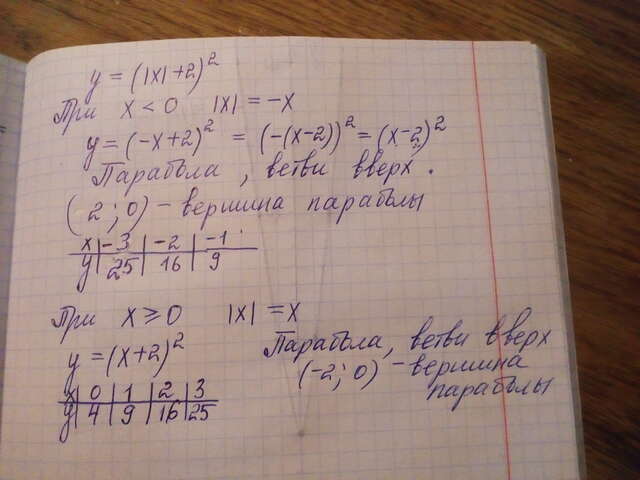 y = (|x|+2)²
При x < 0 |x| = -x
y = (-x+2)² = (-(x-2))² = (x-2)²
Парабола, ветви вверх.
(2; 0) - вершина параболы
x | -3 | -2 | -1
y | 25 | 16 | 9
При x ≥ 0 |x| = x
y = (x+2)²
Парабола, ветви вверх
(-2; 0) - вершина
параболы
x | 0 | 1 | 2 | 3
y | 4 | 9 | 16 | 25